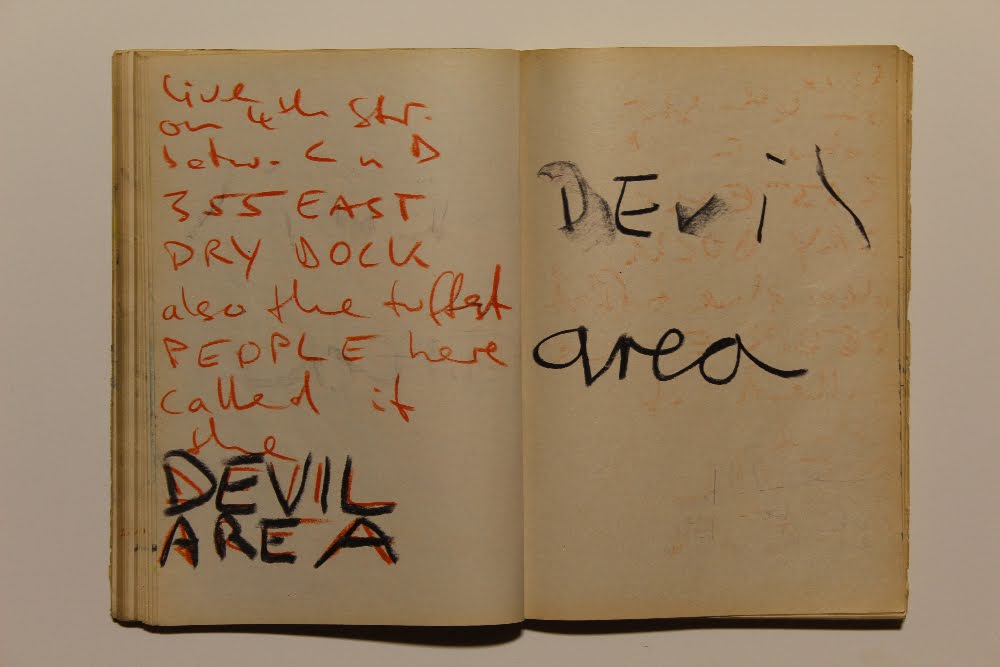 live
on 4th Str.
betw. C u D
355 EAST
DRY DOCK
also the tuffest
PEOPLE here
called it
the
DEVIL
AREA
DEvil
area